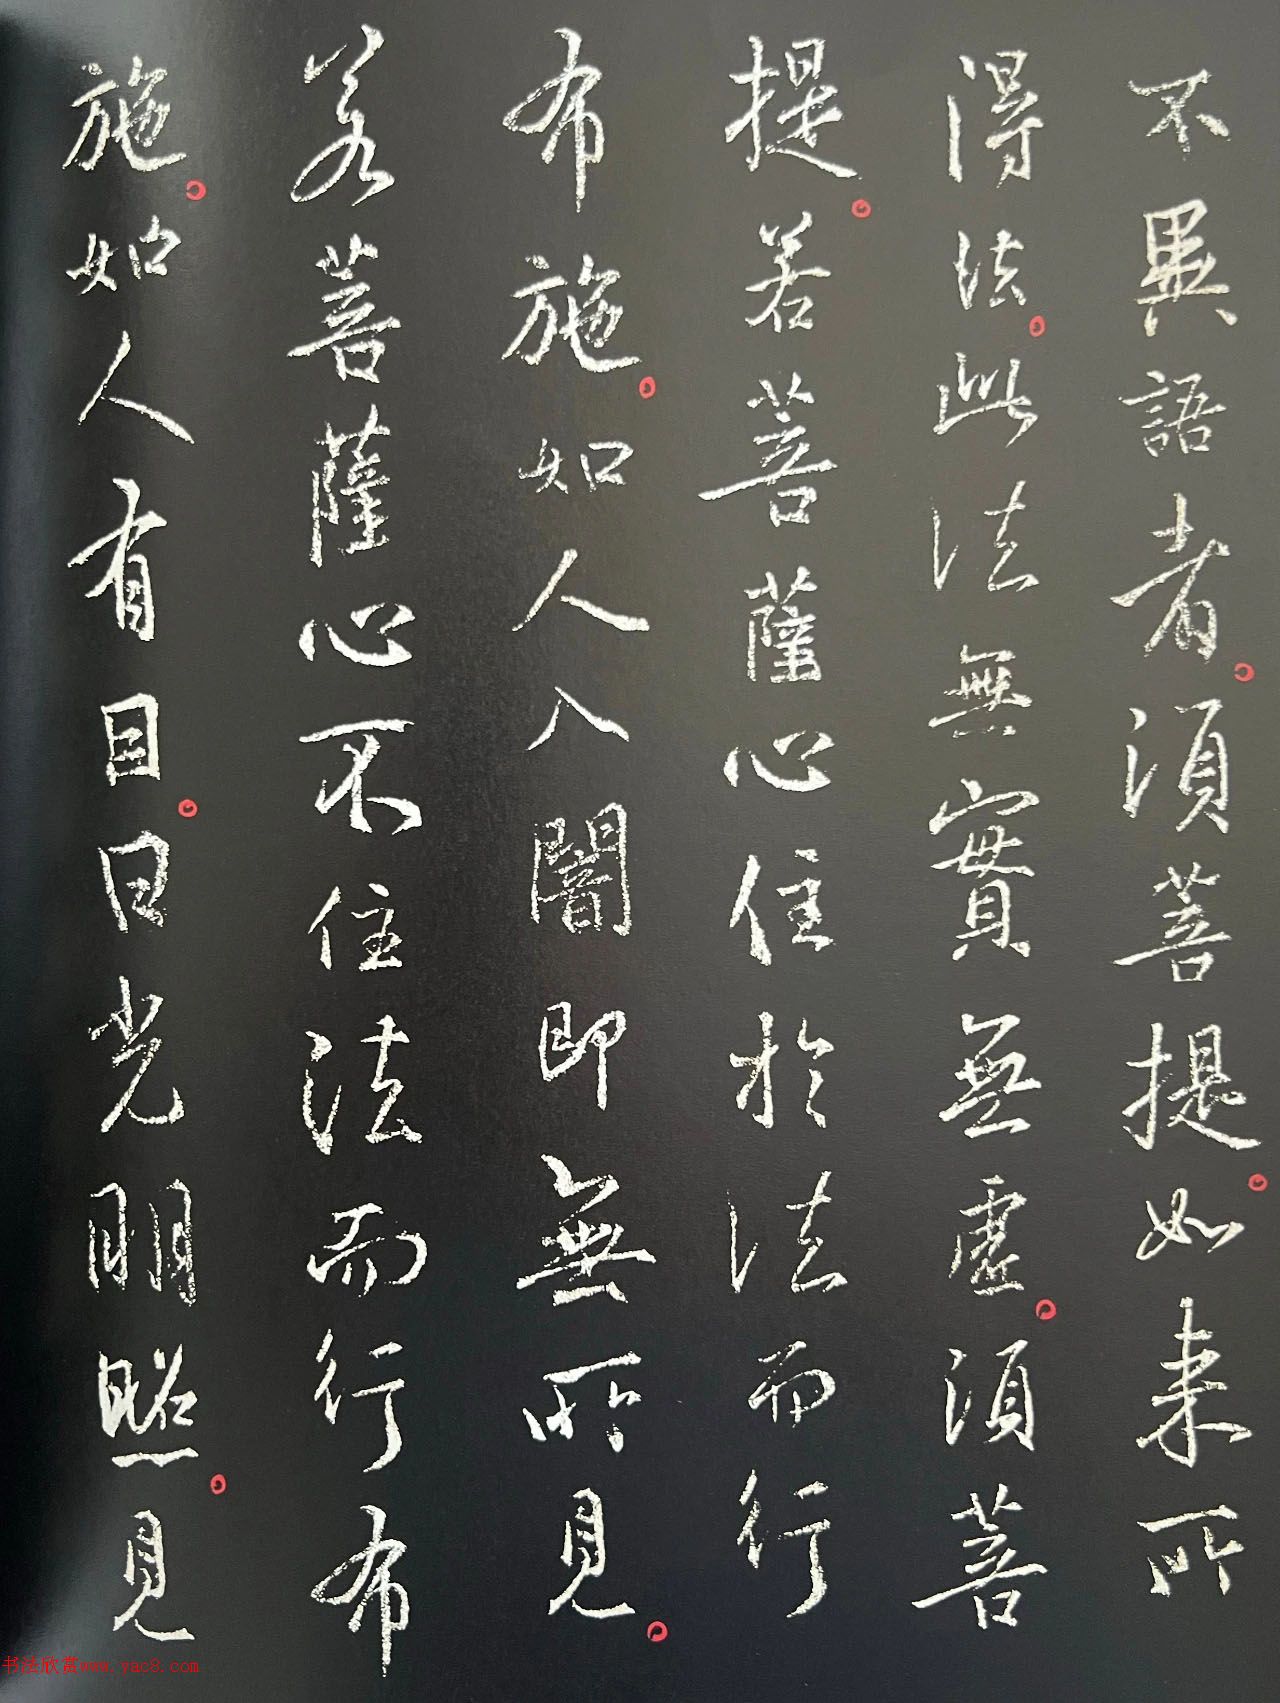 不異語者。須菩提。如来所
得法。此法無實無虛。須菩
提。若菩薩心住於法而行
布施。如人入闇即無所見。
若菩薩心不住法而行布
施。如人有目。日光明照。見
书法欣赏www.yac8.com